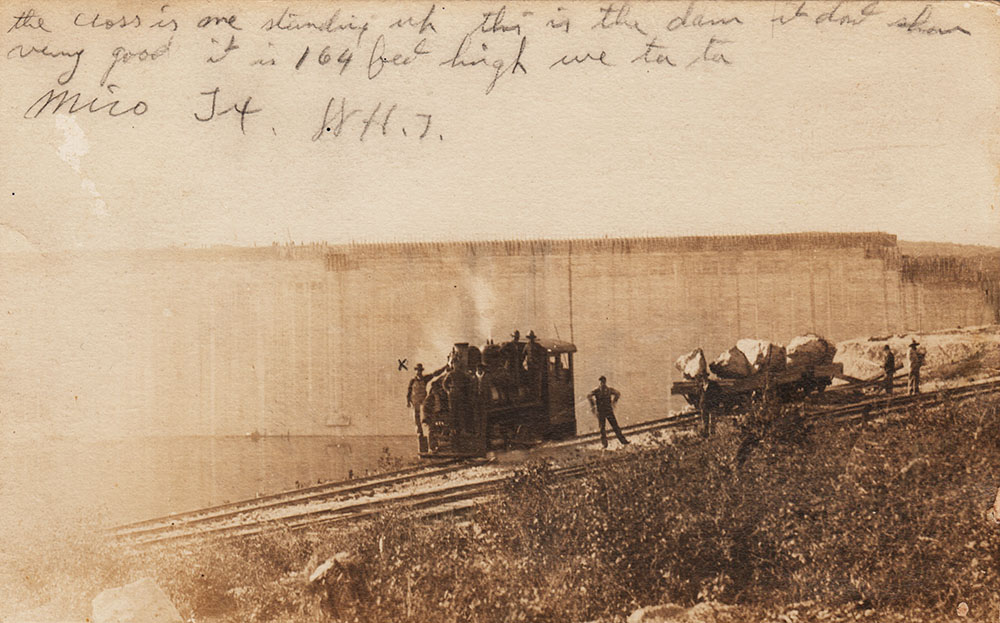 the cross is me standing up this is the dam it dont show
very good it is 164 feet high we ta ta
Mico Tx. W.H.T.
x